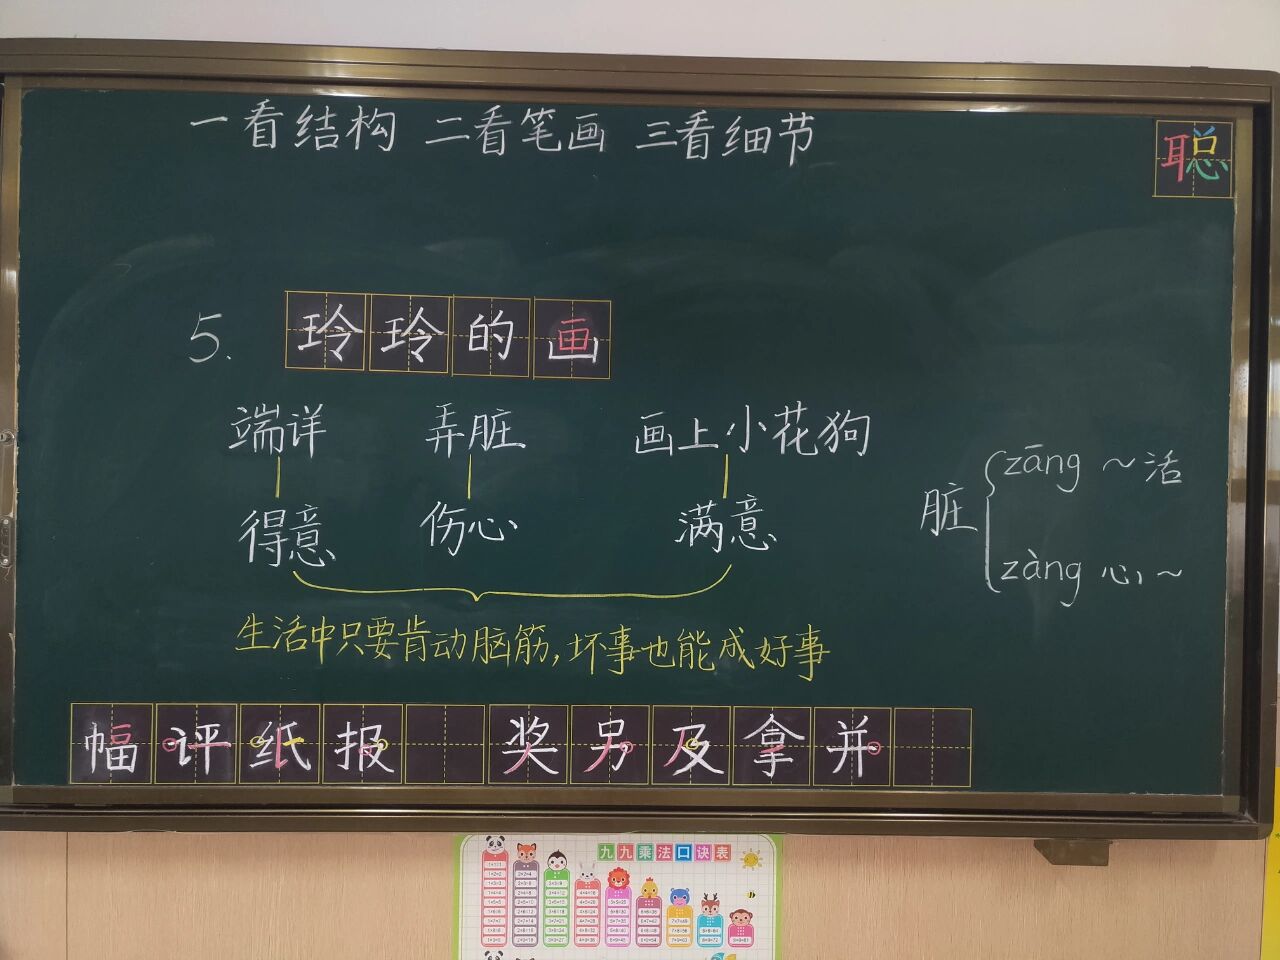 一看结构 二看笔画 三看细节
聪
5. 玲玲的画
端详 弄脏 画上小花狗
得意 伤心 满意
脏 zāng ～活
zàng 心～
生活中只要肯动脑筋，坏事也能成好事
幅评纸报 奖另及拿并
九九乘法口诀表